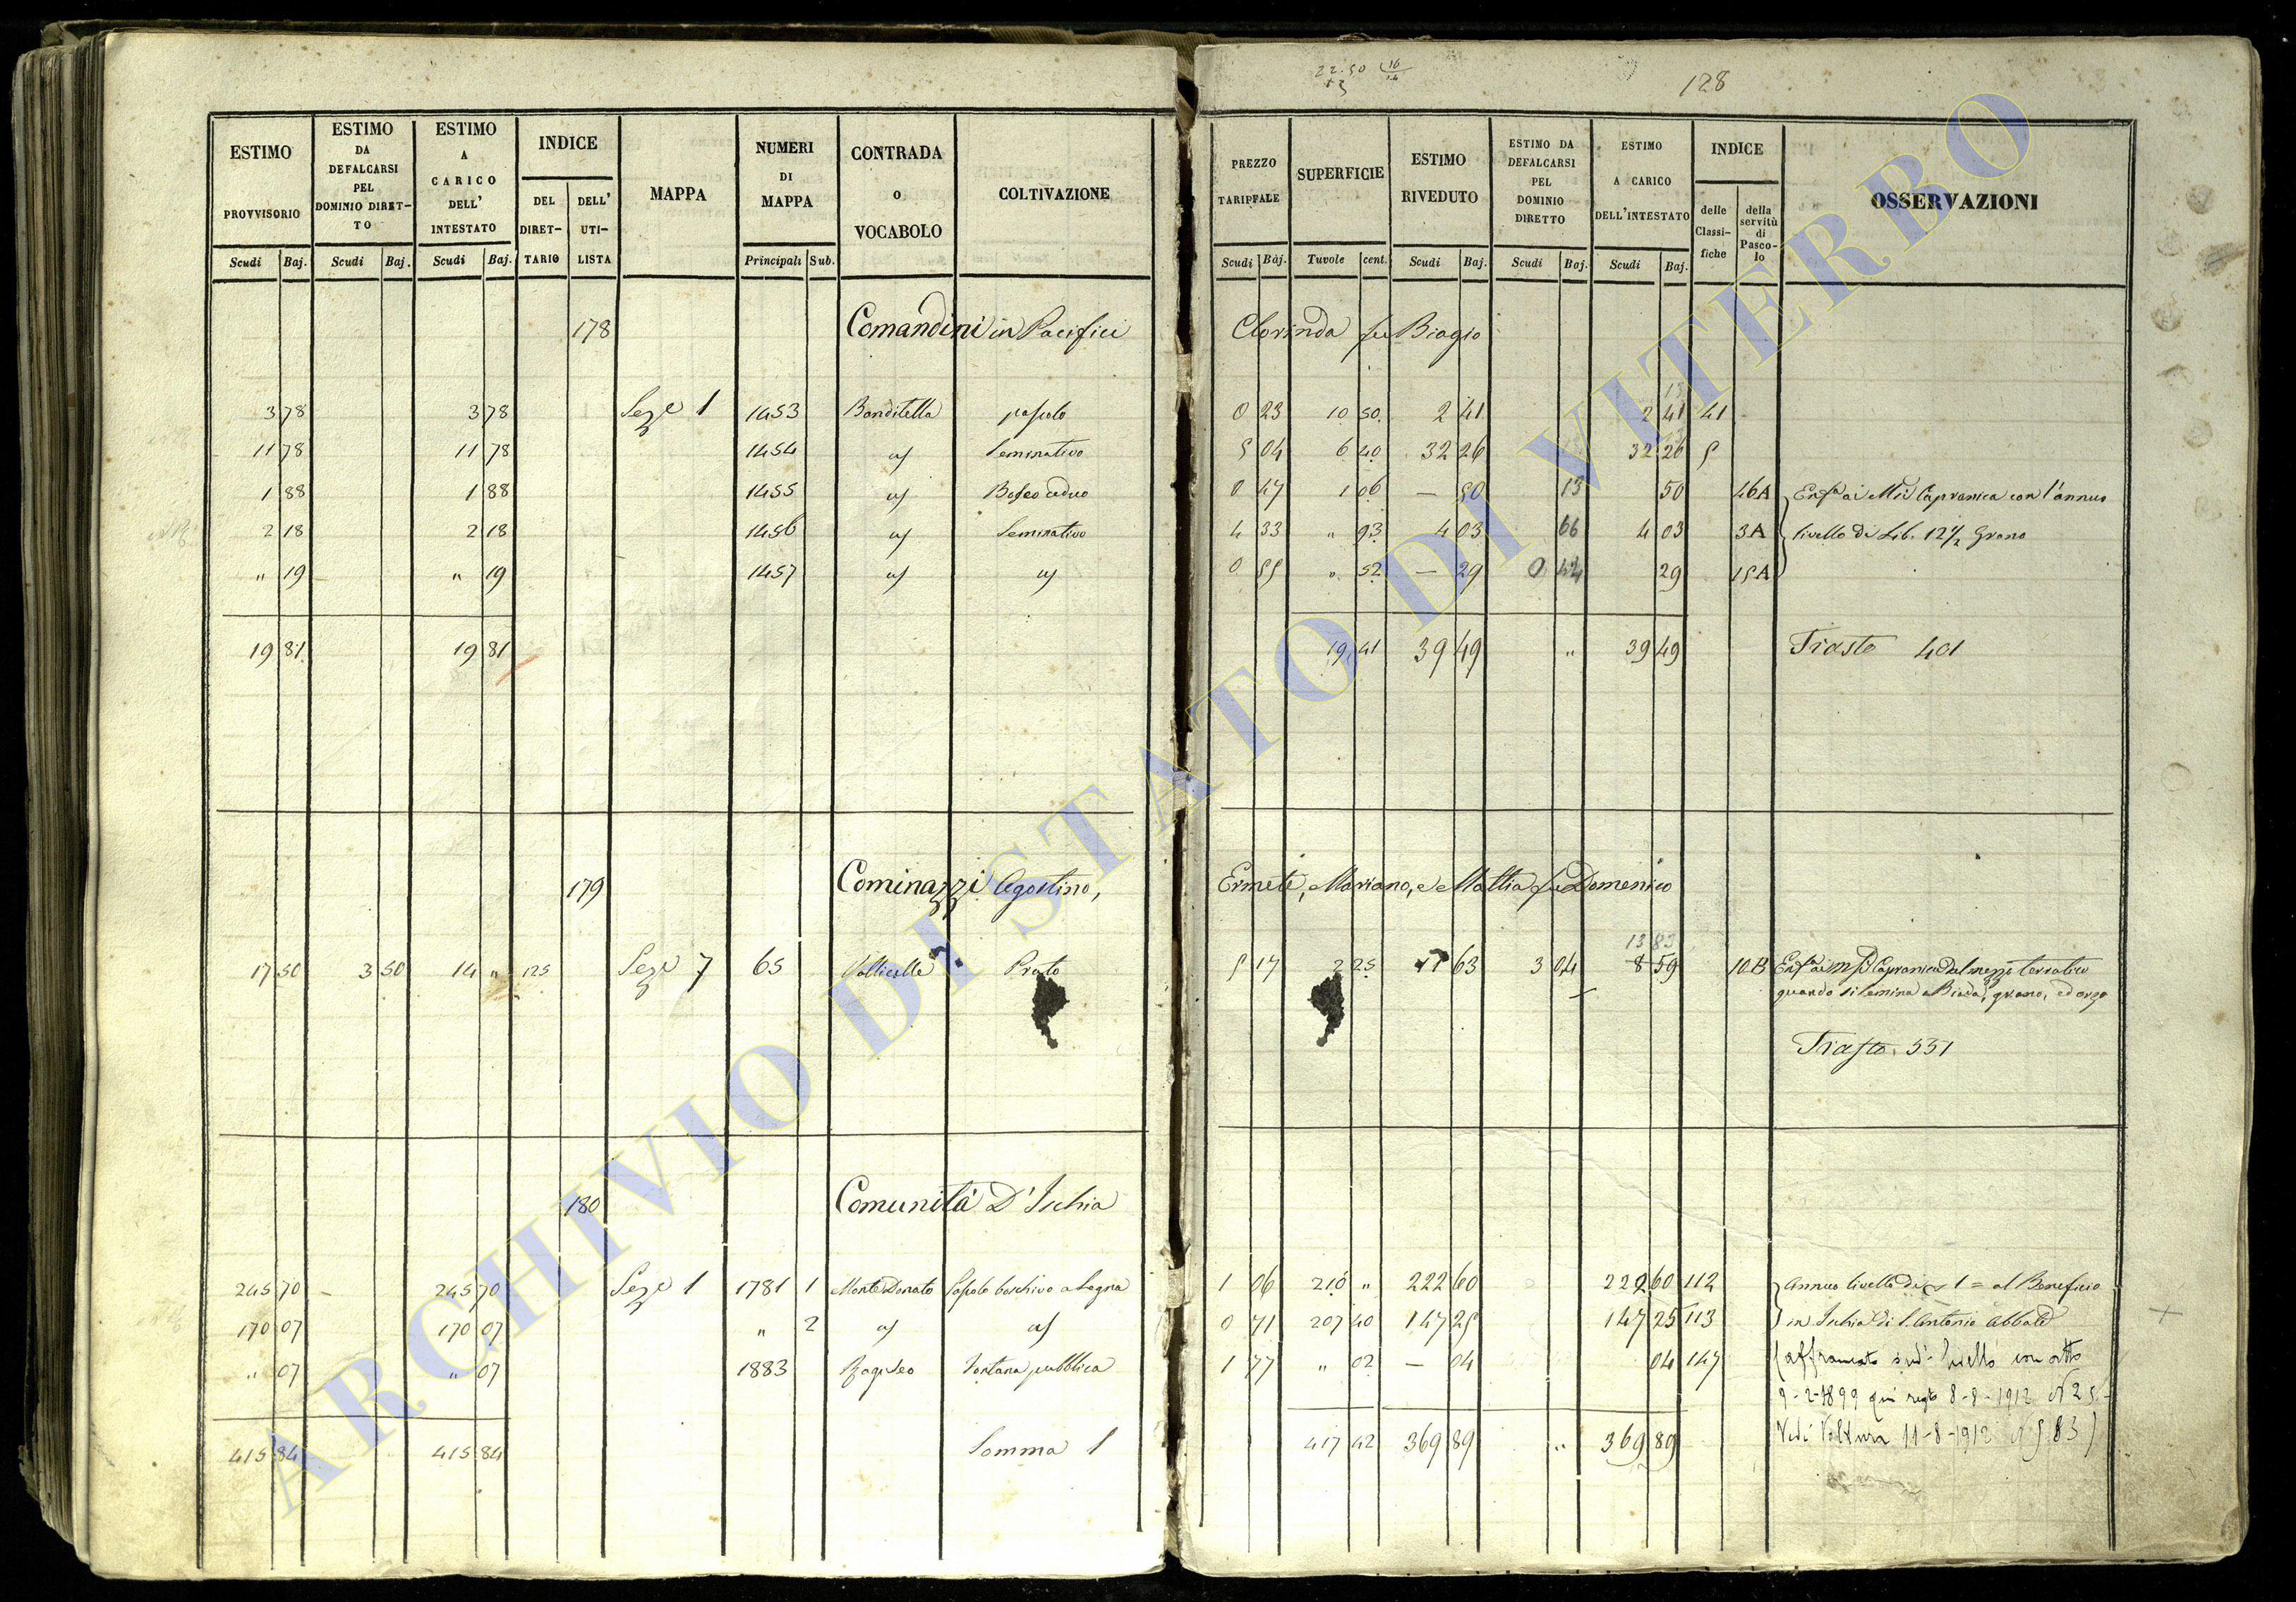 22.50 16
+3 14
128
ESTIMO PROVVISORIO Scudi Baj. ESTIMO DA DEFALCARSI PEL DOMINIO DIRET-TO Scudi Baj. ESTIMO A CARICO DELL' INTESTATO Scudi Baj. INDICE DEL DIRET-TARIO DELL' UTI-LISTA MAPPA NUMERI DI MAPPA Principali Sub. CONTRADA O VOCABOLO COLTIVAZIONE PREZZO TARIFFALE Scudi Baj. SUPERFICIE Tavole cent. ESTIMO RIVEDUTO Scudi Baj. ESTIMO DA DEFALCARSI PEL DOMINIO DIRETTO Scudi Baj. ESTIMO A CARICO DELL'INTESTATO Scudi Baj. INDICE delle Classi-fiche della servitù di Pasco-lo OSSERVAZIONI
178 Comandini in Pacifici Clorinda fu Biagio
3 78 3 78 Seze 1 1453 Banditella pascolo 0 23 10 50 2 41 2 41 41
11 78 11 78 1454 " Seminativo 5 04 6 40 32 26 32 26 5
1 88 1 88 1455 " Bosco ceduo 0 47 1 06 — 50 13 50 46A Enfa ai Capranica con l'annuo
2 18 2 18 1456 " Seminativo 4 33 " 93 4 03 66 4 03 3A livello di Lib. 12 1/2 Grano
" 19 " 19 1457 " " 0 55 " 52 — 29 0 44 29 15A
19 81 19 81 19 41 39 49 " 39 49 Trasto 401
179 Cominazzi Agostino, Ermete, Mariano, e Mattia fu Domenico
13 83
17 50 3 50 14 " 125 Seze 7 65 Vallicella Prato 5 17 2 25 63 3 04 8 59 10B Enfa ai Capranica del mezzo terratico
quando si semina a Biada, grano, ed orzo
Trasto. 551
180 Comunità D'Ischia
245 70 — 245 70 Seze 1 1781 1 Monte Donato Pascolo boschivo a Legna 1 06 210 " 222 60 222 60 112 Annuo livello di 1 = al Beneficio
170 07 170 07 " 2 " " 0 71 207 40 147 25 147 25 113 in Ischia di S. Antonio Abbate
" 07 " 07 1883 Fontana pubblica 1 77 " 02 — 04 04 147 (affrancato livello con atto
9-2-1899 8-8-1912 N 25.
415 84 415 84 Somma 1 417 42 369 89 " 369 89 Vedi Voltura 11-8-1912 83)
ARCHIVIO DI STATO DI VITERBO